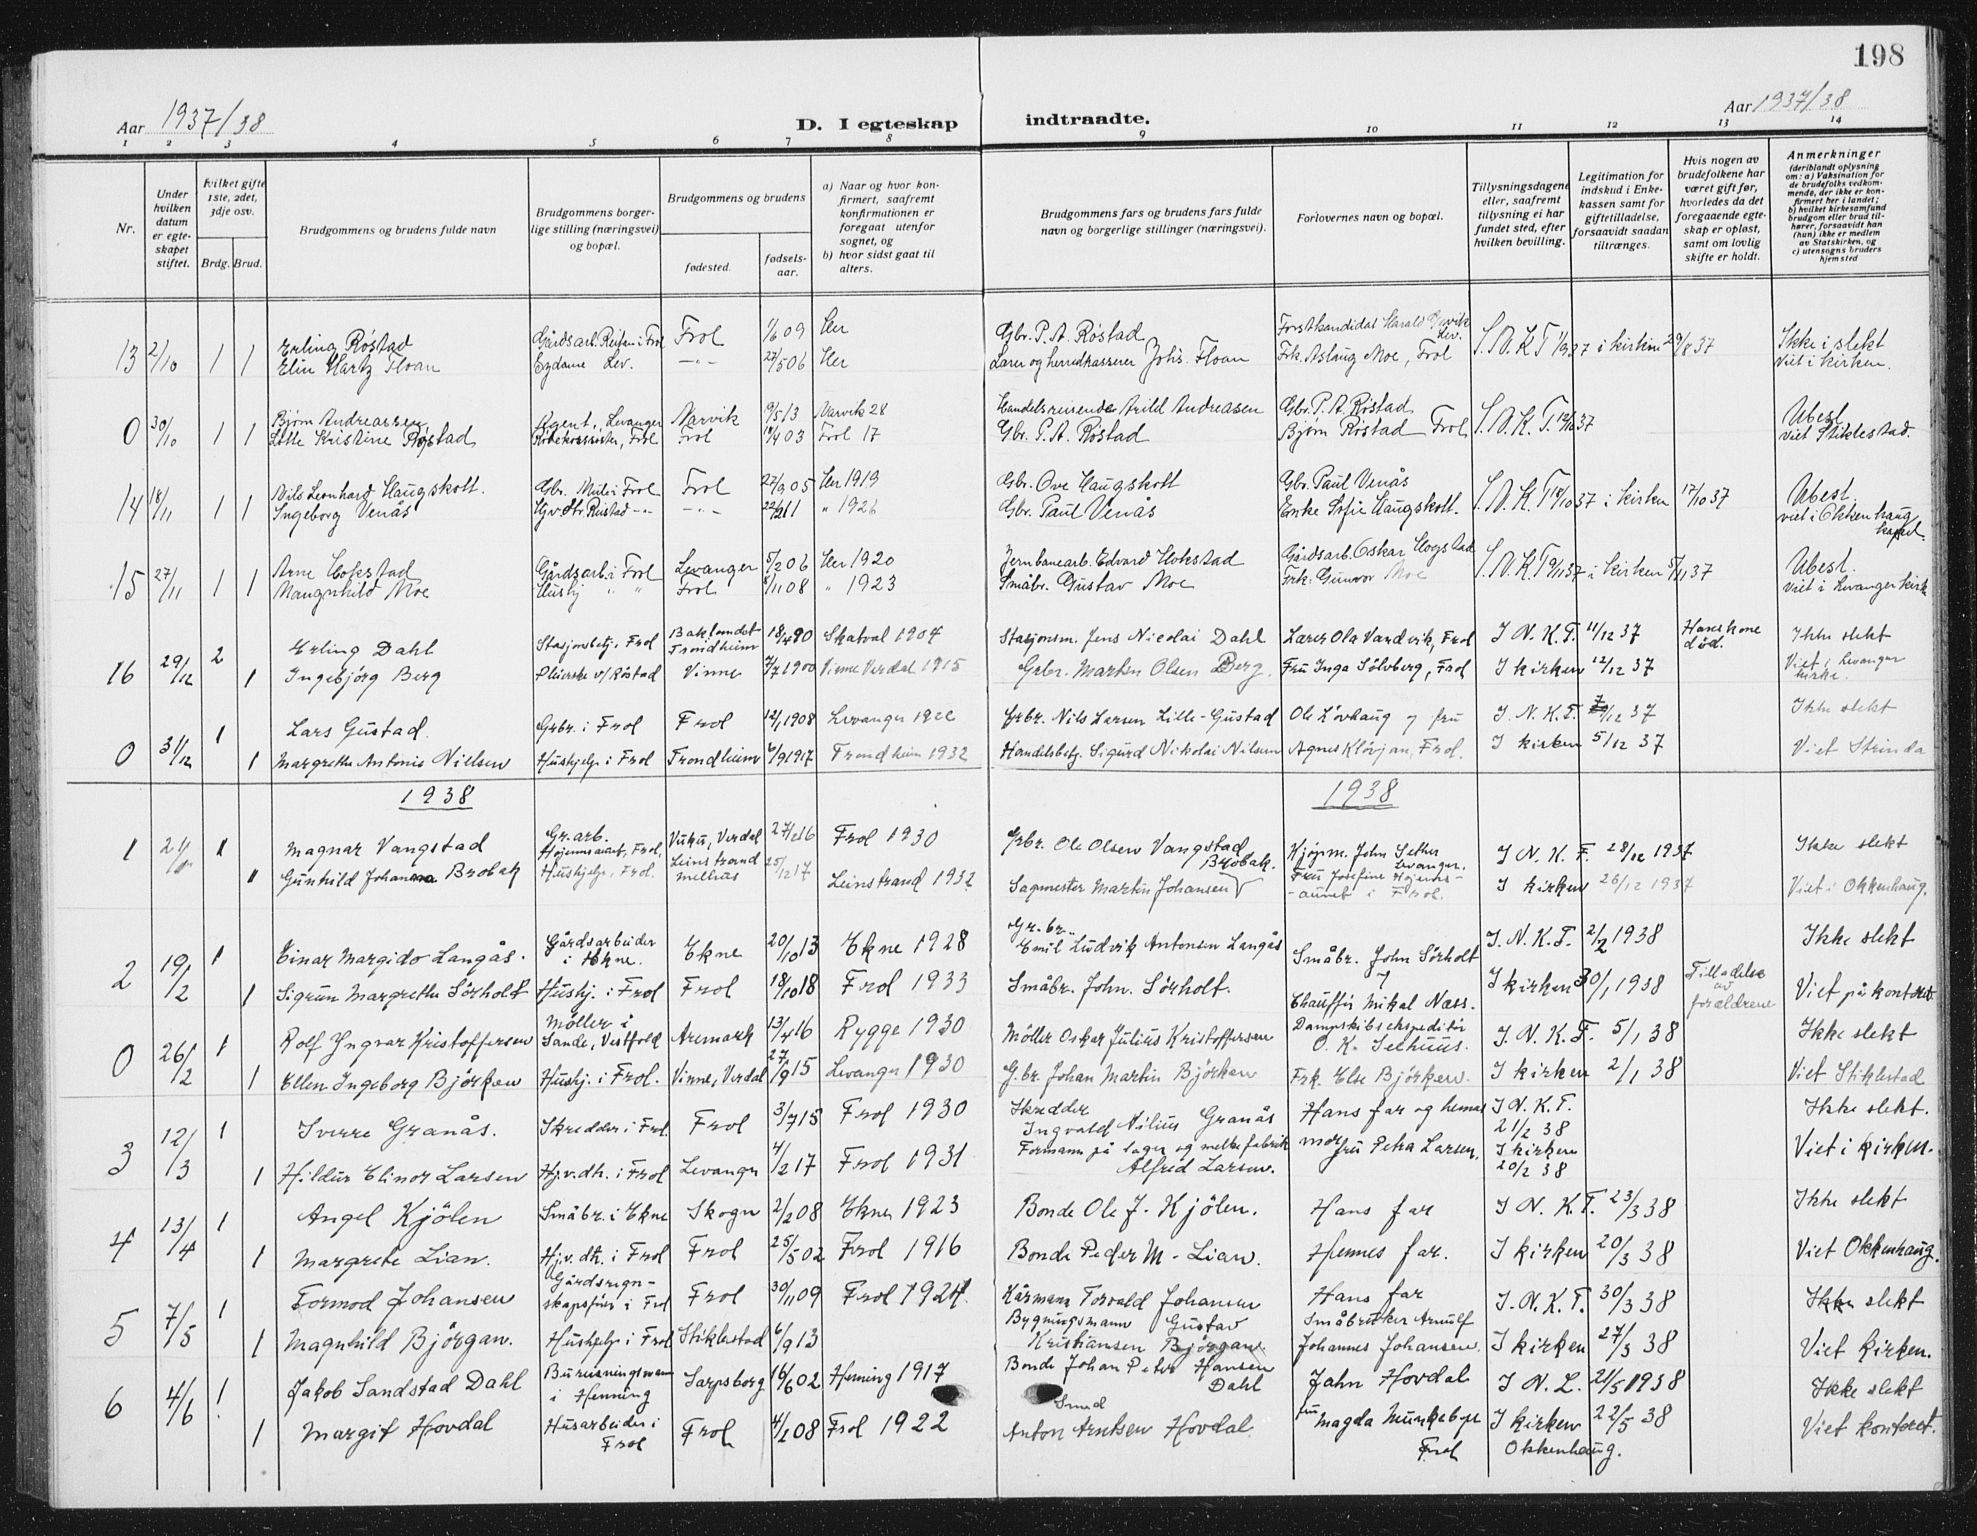 198
Aar 1937/38
D. I egteskap indtraadte.
Aar 1937/38
1 2 3 4 5 6 7 8 9 10 11 12 13 14
Nr.
Under hvilken datum er egteskapet stiftet.
Hvilket gifte 1ste, 2det, 3dje osv.
Brdg. Brud.
Brudgommens og brudens fulde navn
Brudgommens borgerlige stilling (næringsvei) og bopæl.
Brudgommens og brudens
fødested.
fødselsaar.
a) Naar og hvor konfirmert, saafremt konfirmationen er foregaat utenfor sognet, og
b) hvor sidst gaat til alters.
Brudgommens fars og brudens fars fulde navn og borgerlige stillinger (næringsvei).
Forlovernes navn og bopæl.
Tillysningsdagene eller, saafremt tillysning ei har fundet sted, efter hvilken bevilling.
Legitimation for indskud i Enkekassen samt for giftetilladelse, forsaavidt saadan tiltrænges.
Hvis nogen av brudefolkene har været gift før, hvorledes da det foregaaende egteskap er opløst, samt om lovlig skifte er holdt.
Anmerkninger
(deriblandt oplysning om: a) Vaksination for de brudefolks vedkommende, der ikke er konfirmert her i landet; b) hvilket kirkesamfund brudgom eller brud tilhører, forsaavidt han (hun) ikke er medlem av Statskirken, og c) utensogns bruders hjemsted
13 2/10 1 1 Erling Röstad Gårdsarb. i Frol Frol 1/6 09 Her Gbr. P. A. Röstad Forstkandidat Harald Lev. I. N. K. T 1/9 37 i kirken 29/8 37 Ikke i slekt
Elin Hartz Floan Lev. -"- 27/5 06 Her Lærer og herredkasserer Johs. Floan Frk. Aslaug Moe, Frol viet i kirken.
0 30/10 1 1 Bjørn Andreassen, Agent, Levanger Narvik 9/5 13 Narvik 28 Handelsreisende Arild Andreasen Gbr. P. A. Röstad I. N. K. T. 37 Ubest.
Lille Kristine Röstad Frol Frol 4 03 Frol 17 Gbr. P. A. Röstad Bjørn Röstad Frol viet Stiklestad.
14 18/11 1 1 Nils Leonhard Haugskott. Gbr. i Frol Frol 27/9 05 Her 1919 Gbr. Ove Haugskott Gbr. Paul Venås I. N. K T 10 37 i kirken 17/10 37 Ubest.
Ingeborg Venås -"- 11 " 1926 Gbr. Paul Venås Enke Sofie Haugskott. viet i Okkenhaug kapel.
15 27/11 1 1 Arne Hokstad Gårdsarb. i Frol Levanger 5/2 06 Her 1920 Jernbanearb. Edvard Hokstad Gårdsarb. Oskar Hogstad I. N. K T 9/11 37 i kirken 7/11 37 Ubest.
Mangnhild Moe Hushj " " Frol 8/11 08 " 1923 Småbr. Gustav Moe Frk. Gunvor Moe viet i Levanger kirk
16 29/12 2 Erling Dahl Stasjonsbetj. Frol Trondheim 18/4 90 Skatval 1904 Stasjonsm. Jens Nicolai Dahl Lærer Ola Vandvik, Frol I N. K. T. 11/12 37 Hans kone död. Ikke slekt
1 Ingebjörg Berg v/ Röstad Vinne 7/7 1900 Vinne Verdal 1915 Grbr. Martin Olsen Berg. Fru Inga Sölvberg, Frol I kirken 12/12 37 Viet i Levanger kirke.
0 31/12 1 Lars Gustad. Grbr. i Frol Frol 12/1 1908 Levanger 1922 Grbr. Nils Larsen Lille-Gustad Ole Lövhaug og fru I. N. K. T. 7/12 37 Ikke slekt
1 Margrethe Antonie Nielsen Hushjelp i Frol Trondheim 6/9 1917 Trondheim 1932 Handelsbetj. Sigurd Nikolai Nilsen Agnes, Frol. I kirken 5/12 37 Viet Strinda
1938
1938
1 1 Magnar Vangstad Gr. arb. Frol, Vuku, Verdal 27/2 16 Frol 1930 Grbr. Ole Olsen Vangstad Kjöpm. John Sether Levanger. I N. K. F. 28/12 1937 Ikke slekt
" Gunhild Johanna Brobak Hushjelp, Frol. Leinstrand Melhus 25/12 17 Leinstrand 1932 Sagmester Martin Johansen Brobak. Fru Josefine i Frol. I kirken 26/12 1937 Viet i Okkenhaug.
2 19/2 1 Einar Margido Langås. Gårdsarbeider i Ekne. Ekne 20/10 13 Ekne 1928 Gr. br. Emil Ludvik Antonsen Langås Småbr. John Sörholt I. N. K. F. 2/2 1938 Ikke slekt
1 Sigrun Margrethe Sörholt Hushj. i Frol Frol 18/10 18 Frol 1933 Småbr. John. Sörholt. og Chaufför Mikal Næss. I kirken 30/1 1938 Tilladelse av forældrene Viet på kontoret
0 26/2 1 Rolf Yngvar Kristoffersen Möller i Sande, Vestfold Aremark 13/4 16 Rygge 1930 Möller Oskar Julius Kristoffersen Dampskibsekspeditör O. K. Seehuus. I. N. K. F. 5/1 38 Ikke slekt
1 Ellen Ingeborg Björken Hushj. i Frol. Vinne, Verdal 27/9 15 Levanger 1930 G. br. Johan Martin Björken Frk. Else Björken. I kirken 2/1 38 Viet Stiklestad
3 12/3 1 Sverre Granås. Skredder i Frol Frol 3/7 15 Frol 1930 Skredder Ingvald Nilius Granås Hans far og hennes mor I N. K. T. 21/2 38 Ikke slekt.
1 Hildur Elinor Larsen Hjv. dtr. i Frol Levanger 4/2 17 Frol 1931 Formann på lager og melkefabrik Alfred Larsen. fru Petra Larsen, I kirken 20/2 38 Viet i kirken.
4 13/4 1 Angel Kjölen Småbr. i Ekne Skogn 2/2 08 Ekne 1923 Bonde Ole J. Kjölen. Hans far I N. K. T. 23/3 38 Ikke slekt
1 Margrete Lian. Hjv. dtr. i Frol Frol 25/5 02 Frol 1916 Bonde Peder M. Lian. Hennes far. I kirken 20/3 38 Viet Okkenhaug.
5 7/5 1 Tormod Johansen Gårdsregnskapsförer i Frol Frol 30/11 09 Frol 1924 Kårmann Torvald Johansen Hans far I. N. K. T. 30/3 38 Ikke slekt
1 Magnhild Björgan. Hushjelp i Frol Stiklestad 6/9 13 Bygningsmann Gustav Kristiansen Björgan. Småbruker Arnulf Johannes Johansen. I kirken 27/3 38 Viet kirken.
6 4/6 1 Jakob Sandstad Dahl Bureisningsmann i Henning Sarpsborg 16/6 02 Henning 1917 Bonde Johan Peter Hansen Dahl Jahn Hovdal I N. L. 21/5 1938 Ikke slekt
1 Margit Hovdal Husarbeider i Frol Frol 08 Frol 1922 Smed Anton Arntsen Hovdal. fru Magda Munkeby Frol I kirken 22/5 38 Okkenhaug. Viet kontoret.